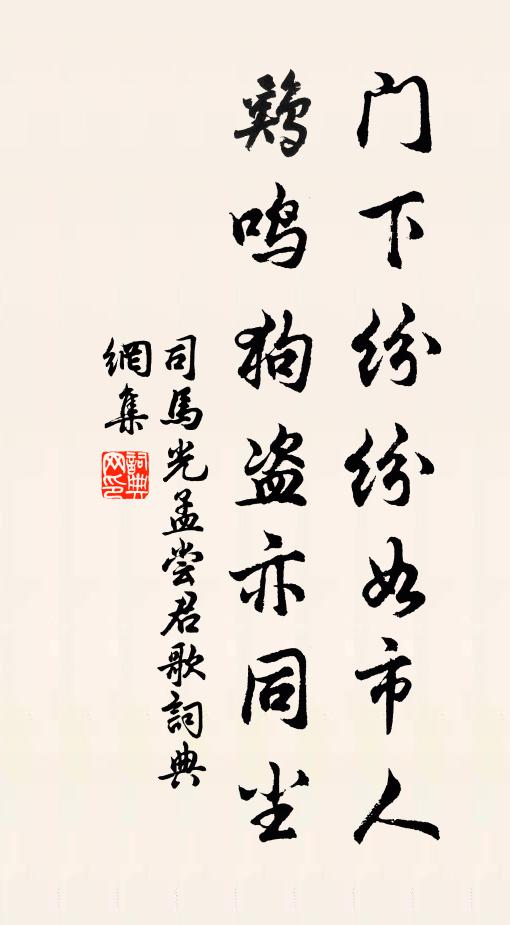 门下纷纷如市人
鸡鸣狗盗亦同尘
司馬光孟尝君歌詞典
網集
詞典
网印